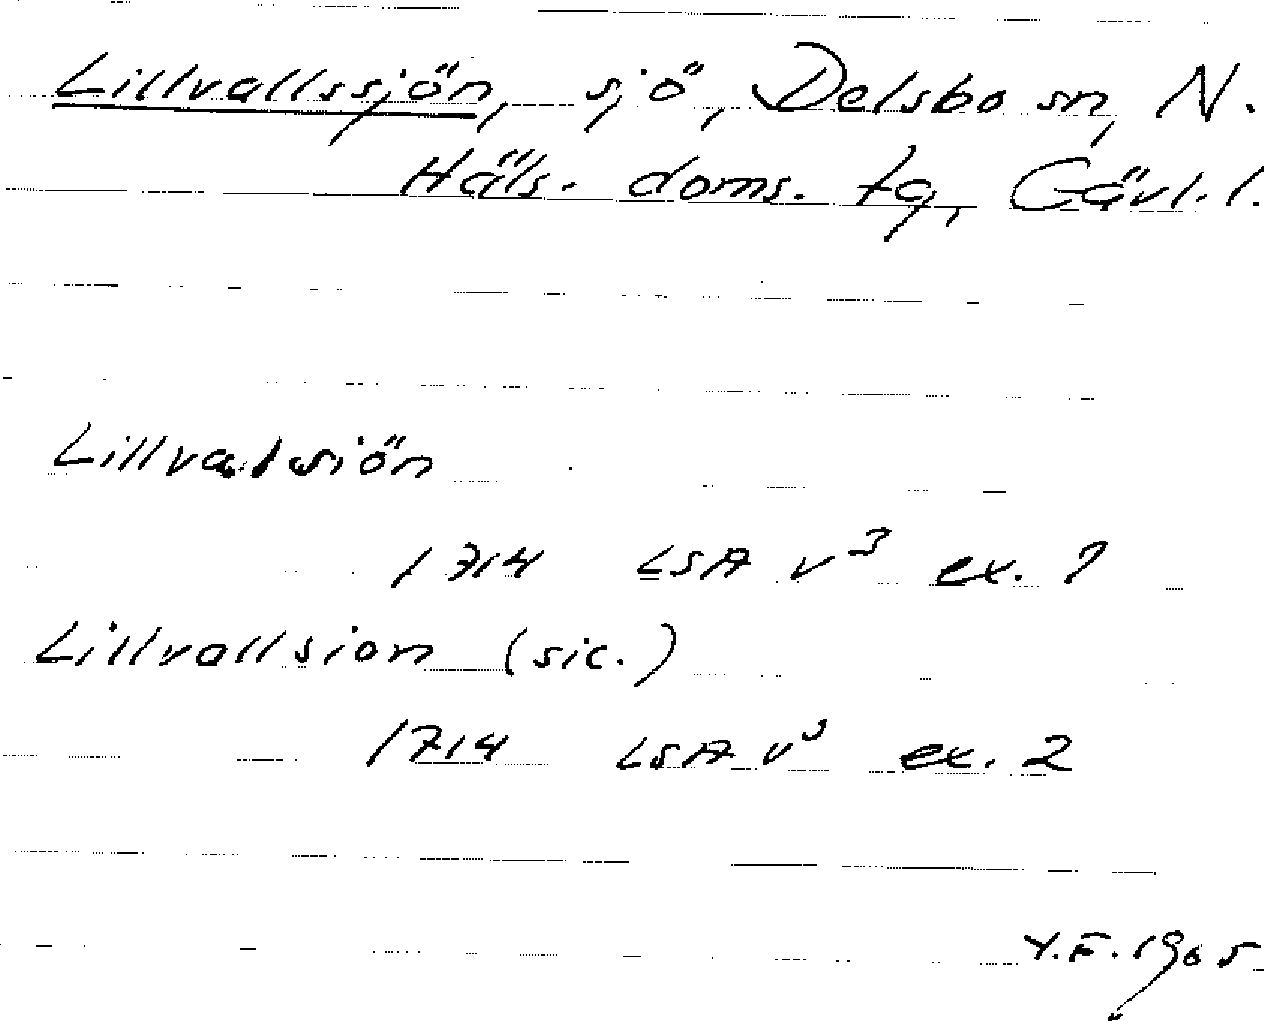 Lillvallssjön, sjö, Delsbo sn, N.
Häls. doms. tg, Gävl. l.
Lillvalsiön
1714 LSA v³ ex. 1
Lillvallsion (sic.)
1714 LSA v³ ex. 2
Y.F. 1965